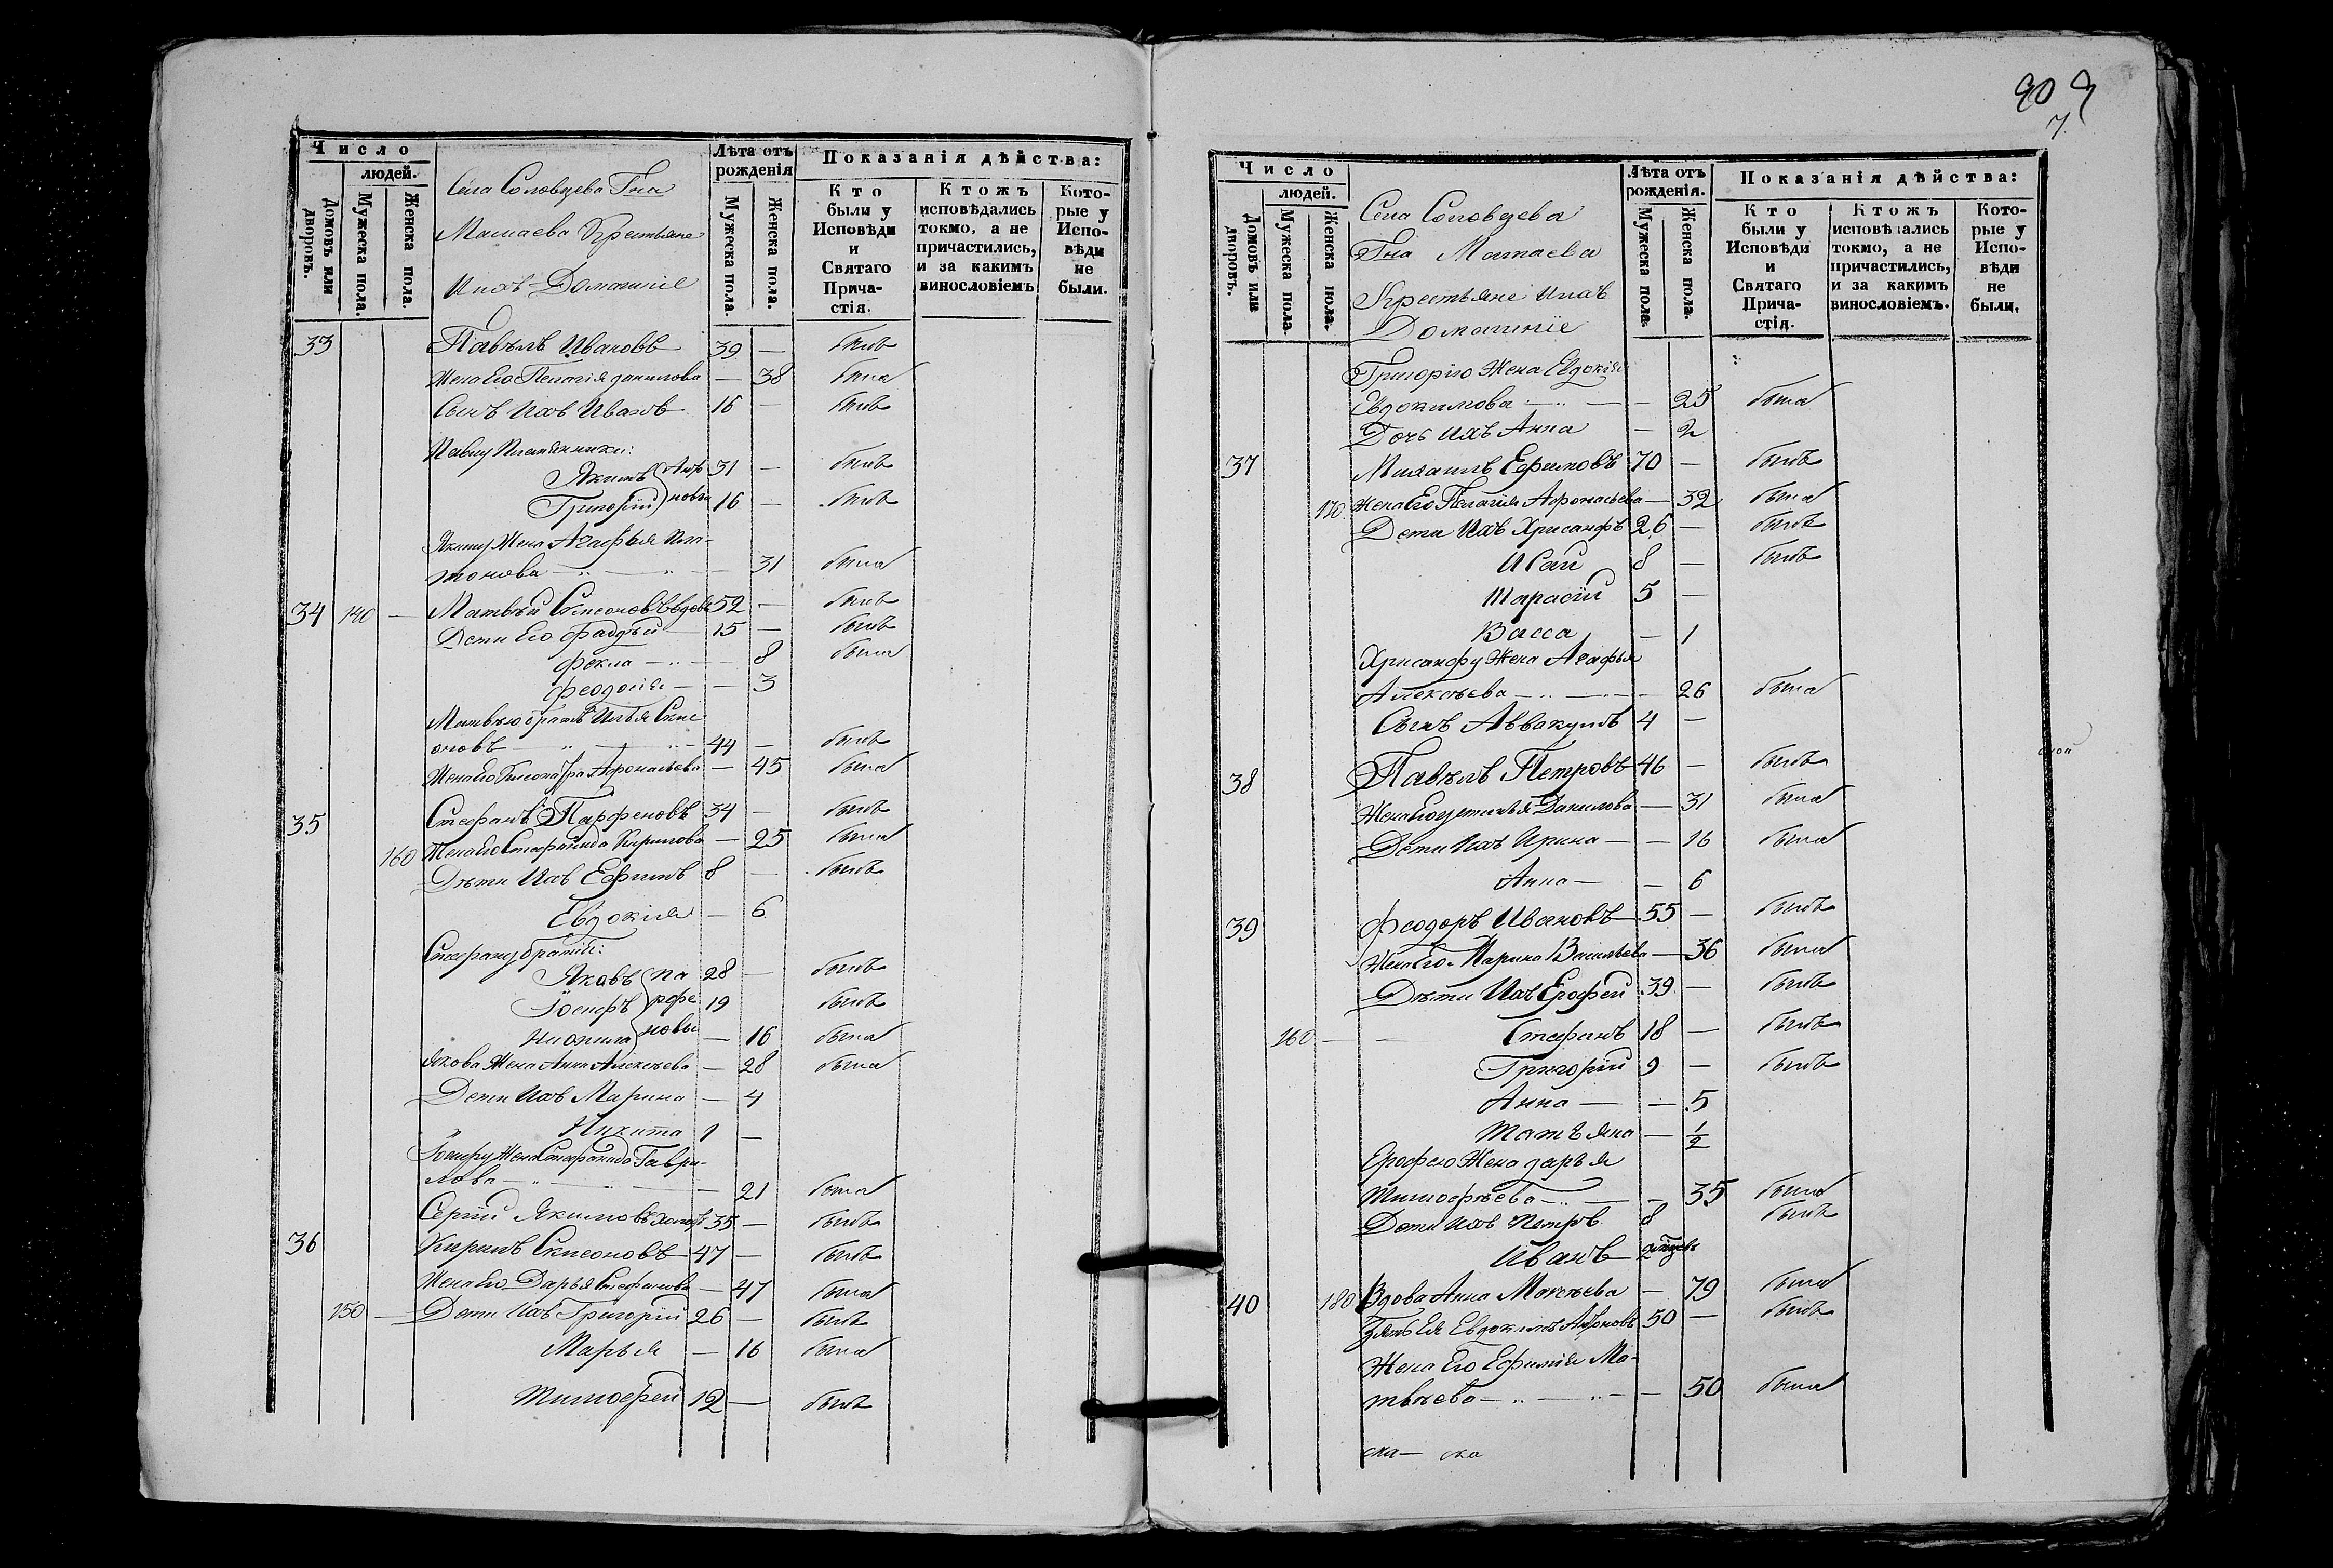 Число
людей.
Домовъ или дворовъ.
Мужеска пола.
Женска пола.
Села Соловцева Гна
Мамаева Крестьяне
Ихъ Домашніе
Лѣта отъ рожденія
Мужеска пола.
Женска пола.
Показанія дѣйства:
Кто были у Исповѣди и Святаго Причастія.
Ктожъ исповѣдались токмо, а не причастились, и за какимъ винословіемъ
Которые у Исповѣди не были.
33 Павелъ Ивановъ 39 — былъ
Жена Его Пелагія данилова — 38 была
Сынъ Ихъ Иванъ 16 — былъ
Павлу Племянники:
Якимъ 31 — былъ
Григорій 16 — былъ
Якиму Жена Агафья Пла-
тонова — 31 была
34 140 — Матвѣй Симеоновъ вдовъ 52 — былъ
Дети Его Фадѣй 15 — былъ
Фекла — 8 была
Феодосія — 3
Матвѣю братъ Илья Симе
оновъ 44 — былъ
Жена Его Афонасьева — 45 была
35 Стефанъ Парфеновъ 34 — былъ
160 Жена Его Стефанида Кирилова — 25 была
Дѣти Ихъ Ефимъ 8 — былъ
Евдокия — 6
Стефану братія:
Яковъ па 28 — былъ
Іосифъ рфе 19 былъ
новы — 16 была
Якова Жена Анна Алексѣева — 28 была
Дети Ихъ Марина — 4
Никита 1 —
Іосифу Жена Стефанида Гаври-
лова — 21 была
Сергій Якимовъ холостъ 35 — былъ
36 Кирилъ Симеоновъ 47 — былъ
Жена Его Дарья Стефанова — 47 была
150 — Дети Ихъ Григорій 26 — былъ
Марья — 16 была
Тимофей 12 — былъ
909
7.
Число
людей.
Домовъ или дворовъ.
Мужеска пола.
Женска пола.
Села Соловцева
Гна Мамаева
Крестьяне Ихъ
Домашніе
Лѣта отъ рожденія.
Мужеска пола.
Женска пола.
Показанія дѣйства:
Кто были у Исповѣди и Святаго Причастія.
Ктожъ исповѣдались токмо, а не причастились, и за какимъ винословіемъ.
Которые у Исповѣди не были.
Григорію Жена Евдокія
Евдокимова — 25 была
Дочь Ихъ Анна — 2
37 Михаилъ Ефимовъ 70 — былъ
170 Жена Его Пелагія Афонасьева — 32 была
Дети Ихъ Хрисанфъ 26 — былъ
Исай 8 — былъ
Тарасій 5 —
Васса — 1
Хрисанфу Жена Агафья
Алексѣева — 26 была
Сынъ Аввакумъ 4 —
38 Павелъ Петровъ 46 — былъ
Жена Его устинья Данилова — 31 была
Дети Ихъ Ирина — 16 была
Анна — 6
39 Феодоръ Ивановъ 55 — былъ
Жена Его Марина Васильева — 36 была
Дѣти Ихъ Ерофей 39 — былъ
160 — — Стефанъ 18 — былъ
Григорій 9 — былъ
Анна — 5
Татьяна — 1/2
Ерофею Жена дарья
Тимофѣева — 35 была
Дети Ихъ Петръ 8 былъ
Иванъ
40 180 Вдова Анна Моисѣева — 79 была
Зять Ея Евдокимъ 50 — былъ
Жена Его Ефимія Ма-
твѣева — 50 была